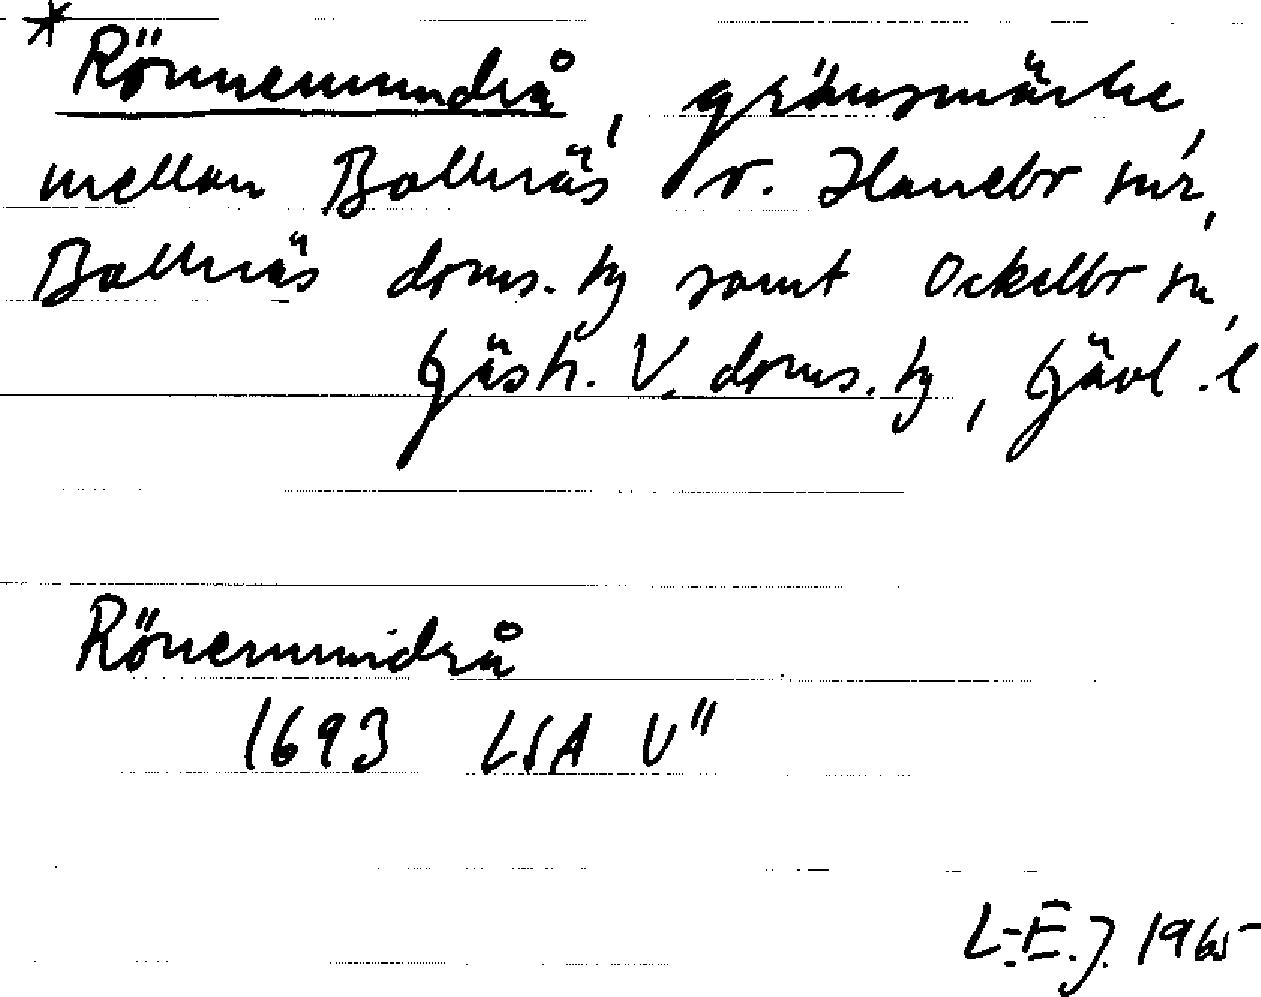 * Rönnemundrå, gränsmärke,
mellan Bollnäs o. Hanebo snr,
Bollnäs doms. hg samt Ockelbo sn,
Gästr. V. doms. hg, Gävl. l
Rönemundrå
1693 LSA U"
L-E.J. 1965